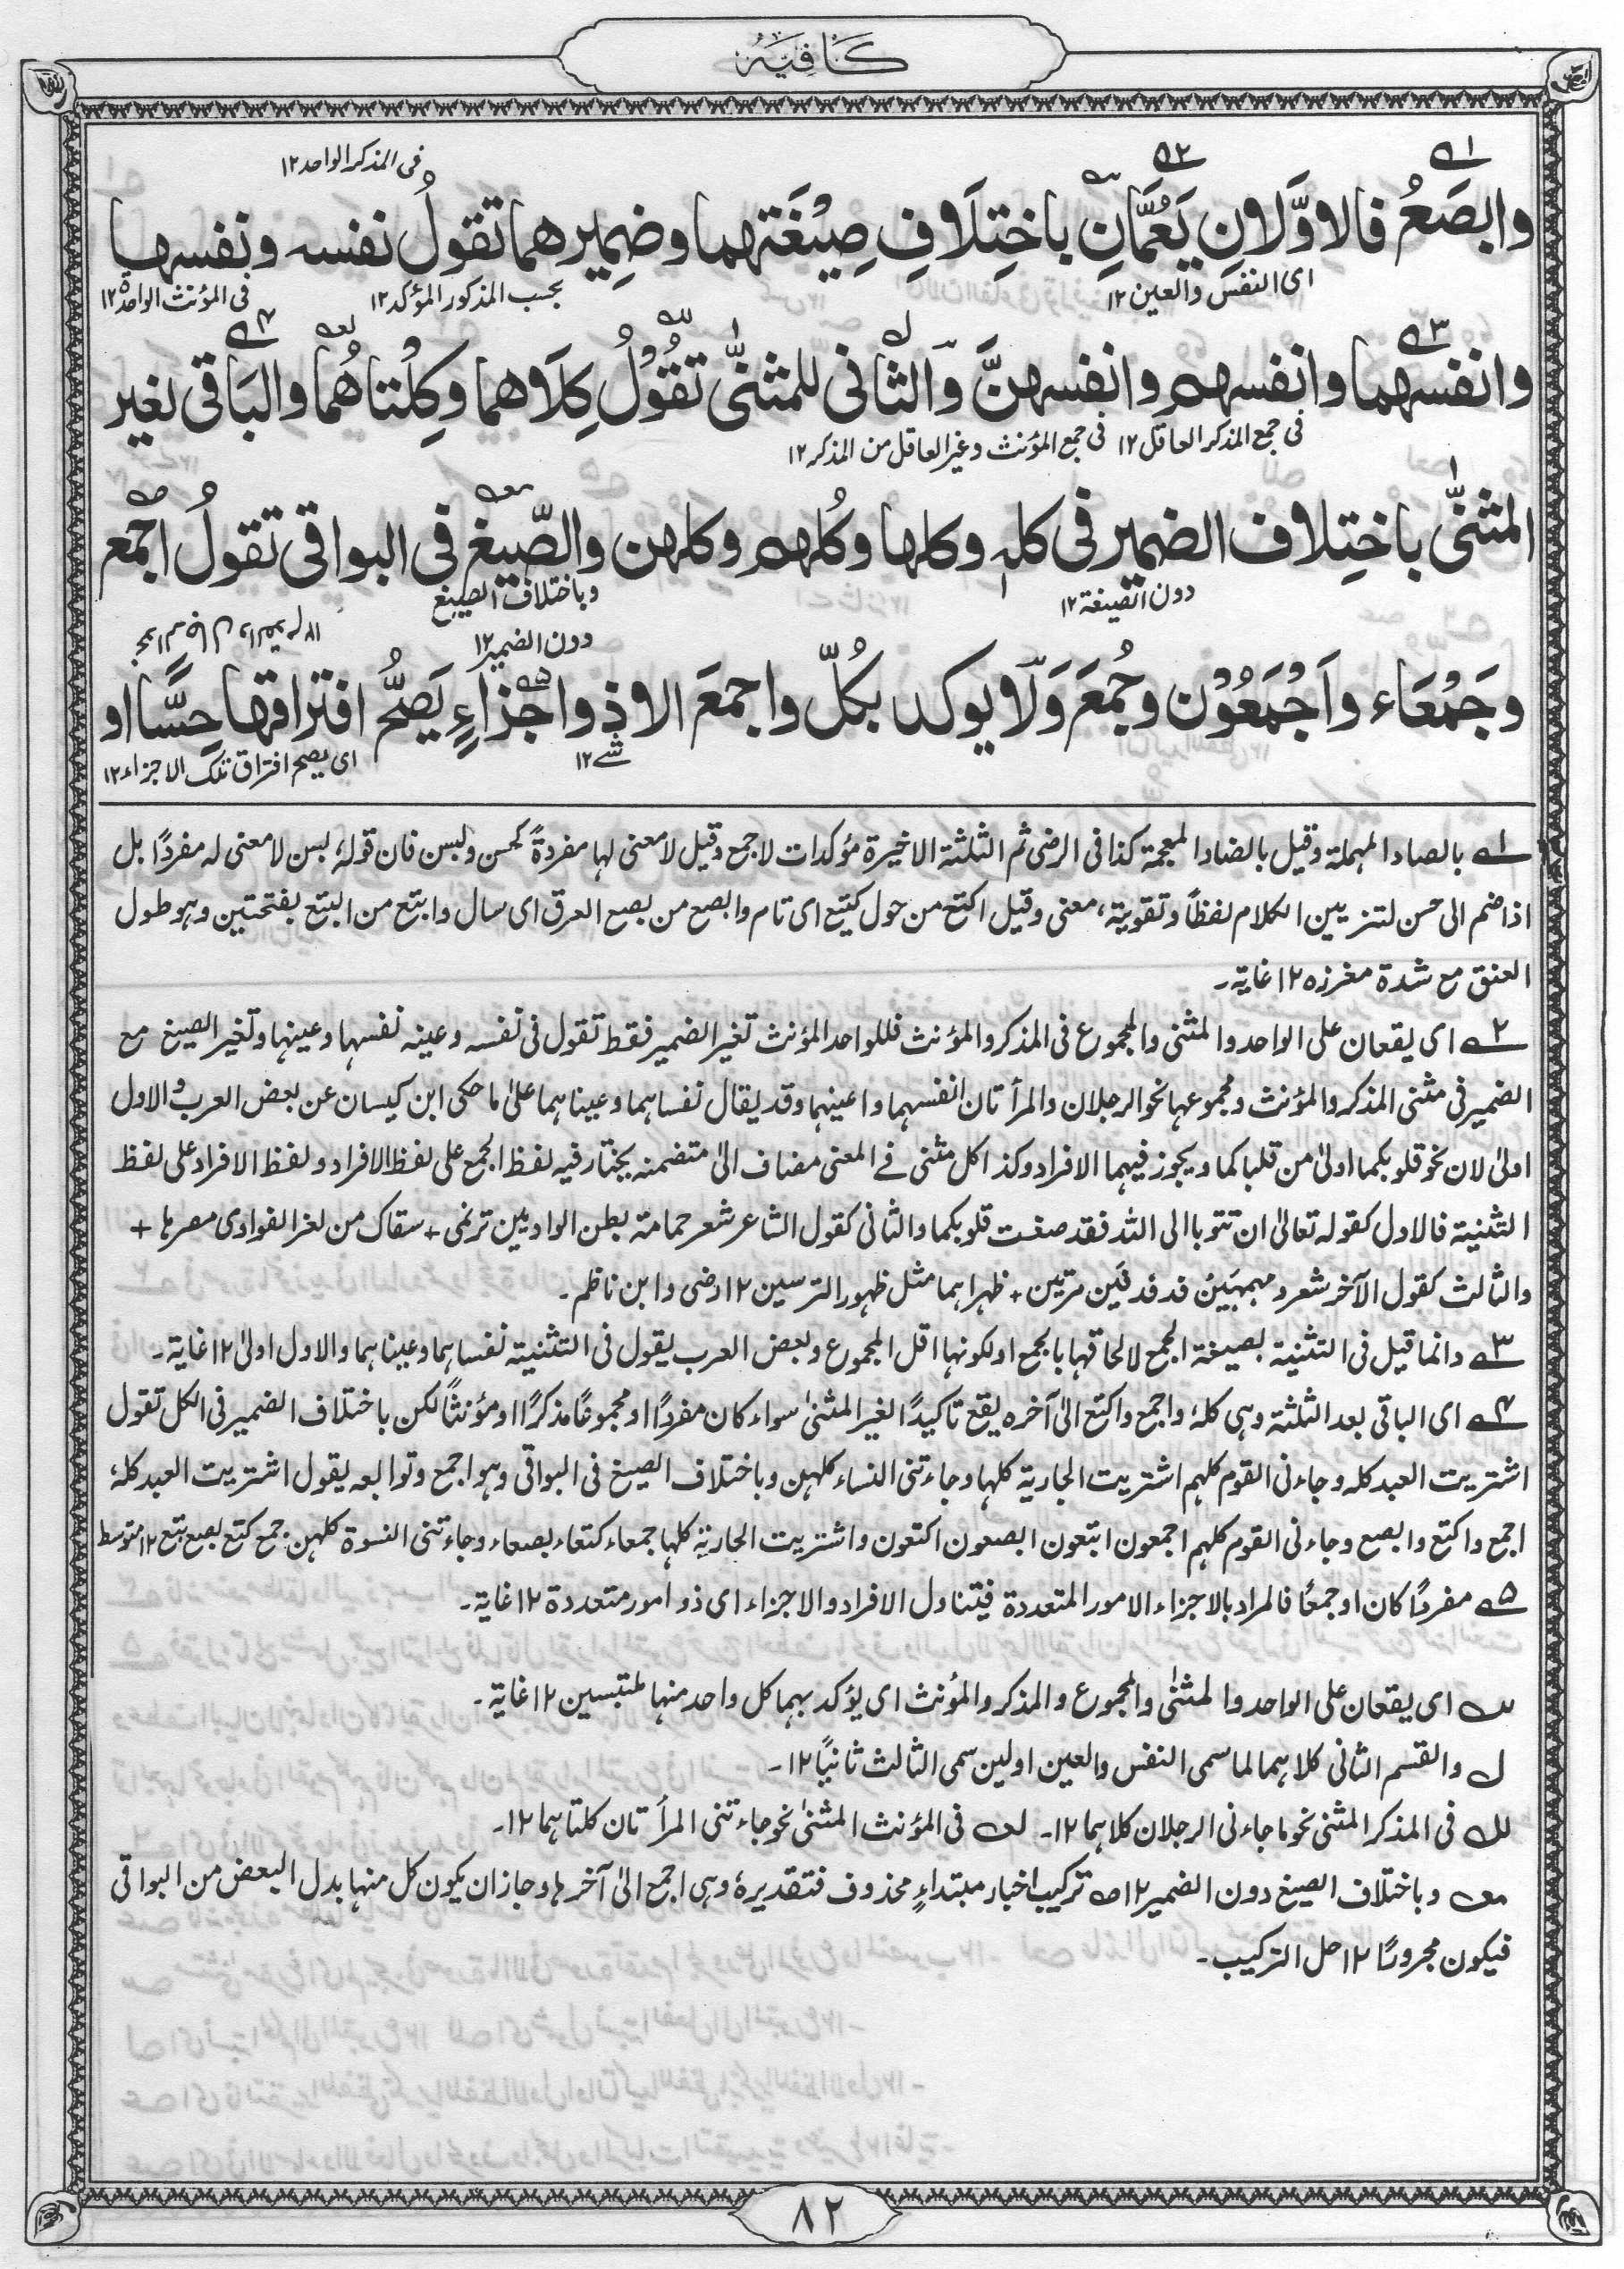 كَافِيَه
في المذكر الواحد١٢
وابصَعُ فالاوَّلانِ يَعُمَّانِ باختِلَافِ صِيْغَتِهما وضِميرِهما تقولُ نفسه ونفسها
اى النفس والعين١٢
بحسب المذكور المؤكد١٢
فى المؤنث الواحدة١٢
وانفسهما وانفسهم وانفسهنَّ وَالثانى للمثنّٰى تقُوْلُ كِلَاهما وكِلْتاهُما والبَاقى لغير
فى جمع المذكر العاقل١٢
فى جمع المؤنث وغير العاقل من المذكر١٢
المثنّٰى باختِلاف الضمير فى كله وكلها وكُلهم وكلهن والصِّيغ فى البواقى تقولُ اجمع
دون الصيغة١٢
وباختلاف الصيغ
دون الضمير١٢
وجَمْعَاء واَجْمَعُوْن وجُمَعَ وَلَا يوكد بكُلّ واجمعَ الا ذو اجْزاءٍ يَصحُّ افتراقها حِسًّا او
شے١٢
اى يصح افتراق تلك الاجزاء١٢
١ بالصاد المهملة وقيل بالضاد المعجمة كذا فى الرضى ثم الثلثة الاخيرة مؤكدات لاجمع وقيل لا معنى لها مفردةً كحسن وبسن فان قوله، بسن لا معنى له مفردًا بل
اذا ضم الى حسن لتزيين الكلام لفظًا وتقوية، معنى وقيل اكتع من حول كتيع اى تام وابصع من بصع العرق اى سال وابتع من البتع بفتحتين وهو طول
العنق مع شدة مغرزه ١٢ غاية۔
٢ اى يقعان على الواحد والمثنى والمجموع فى المذكر والمؤنث فللواحد المؤنث تغير الضمير فقط تقول فى نفسه وعينه نفسها وعينها وتغير الصيغ مع
الضمير فى مثنى المذكر والمؤنث ومجموعها نحو الرجلان والمرأتان انفسهما واعينهما وقد يقال نفساهما وعيناهما علىٰ ما حكى ابن كيسان عن بعض العرب والاول
اولىٰ لان نحو قلوبكما اولىٰ من قلباكما ويجوز فيهما الافراد وكذا كل مثنى فے المعنى مضاف الىٰ متضمنه يختار فيه لفظ الجمع على لفظ الافراد ولفظ الافراد على لفظ
التثنية فالاول كقوله تعالىٰ ان تتوبا الى الله فقد صغت قلوبكما والثانى كقول الشاعر شعر حمامة بطن الواديين ترنمى + سقاك من لغر الغوادى مصرها +
والثالث كقول الآخر شعر ومهمهين قدفدين مرتين + ظهراهما مثل ظهور الترسين ١٢ رضى وابن ناظم۔
٣ وانما قيل فى التثنية بصيغة الجمع لالحاقها بالجمع او لكونها اقل المجموع وبعض العرب يقول فى التثنية نفساهما وعيناهما والاول اولىٰ ١٢ غاية۔
٤ اى الباقى بعد الثلثة وهى كله، واجمع واكتع الىٰ آخره يقع تاكيدًا لغير المثنىٰ سواء كان مفردًا او مجموعًا مذكرًا او مؤنثًا لكن باختلاف الضمير فى الكل تقول
اشتريت العبد كله وجاءنى القوم كلهم اشتريت الجارية كلها وجاءتنى النساء كلهن وباختلاف الصيغ فى البواقى وهو اجمع وتوابعه يقول اشتريت العبد كله،
اجمع واكتع وابصع وجاءنى القوم كلهم اجمعون ابتعون ابصعون اكتعون واشتريت الجارية كلها جمعاء كتعاء بصعاء وجاءتنى النسوة كلهن جمع كتع بصع بتع ١٢ متوسط
٥ مفردًا كان او جمعًا فالمراد بالاجزاء الامور المتعددة فيتناول الافراد والاجزاء اى ذو امور متعددة ١٢ غاية۔
اى يقعان على الواحد والمثنىٰ والمجموع والمذكر والمؤنث اى يؤكد بهما كل واحد منها ملتبسين ١٢ غاية۔
ل والقسم الثانى كلاهما لما سمى النفس والعين اولين سمى الثالث ثانيًا ١٢۔
لل فى المذكر المثنى نحو ما جاءنى الرجلان كلاهما ١٢۔ فى المؤنث المثنىٰ نحو جاءتنى المرأتان كلتاهما ١٢۔
وباختلاف الصيغ دون الضمير ١٢ تركيب اخبار مبتداءٍ محذوف فتقديرهٗ وهى اجمع الىٰ آخرها وجاز ان يكون كل منها بدل البعض من البواقى
فيكون مجرورًا ١٢ حل التركيب۔
٨٢